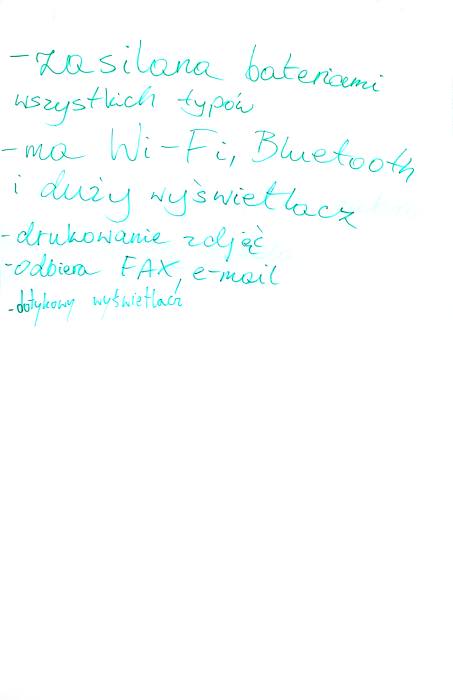 - zasilana bateriami
wszystkich typów
- ma Wi-Fi, Bluetooth
i duży wyświetlacz
- drukowanie zdjęć
- odbiera FAX, e-mail
- dotykowy wyświetlacz